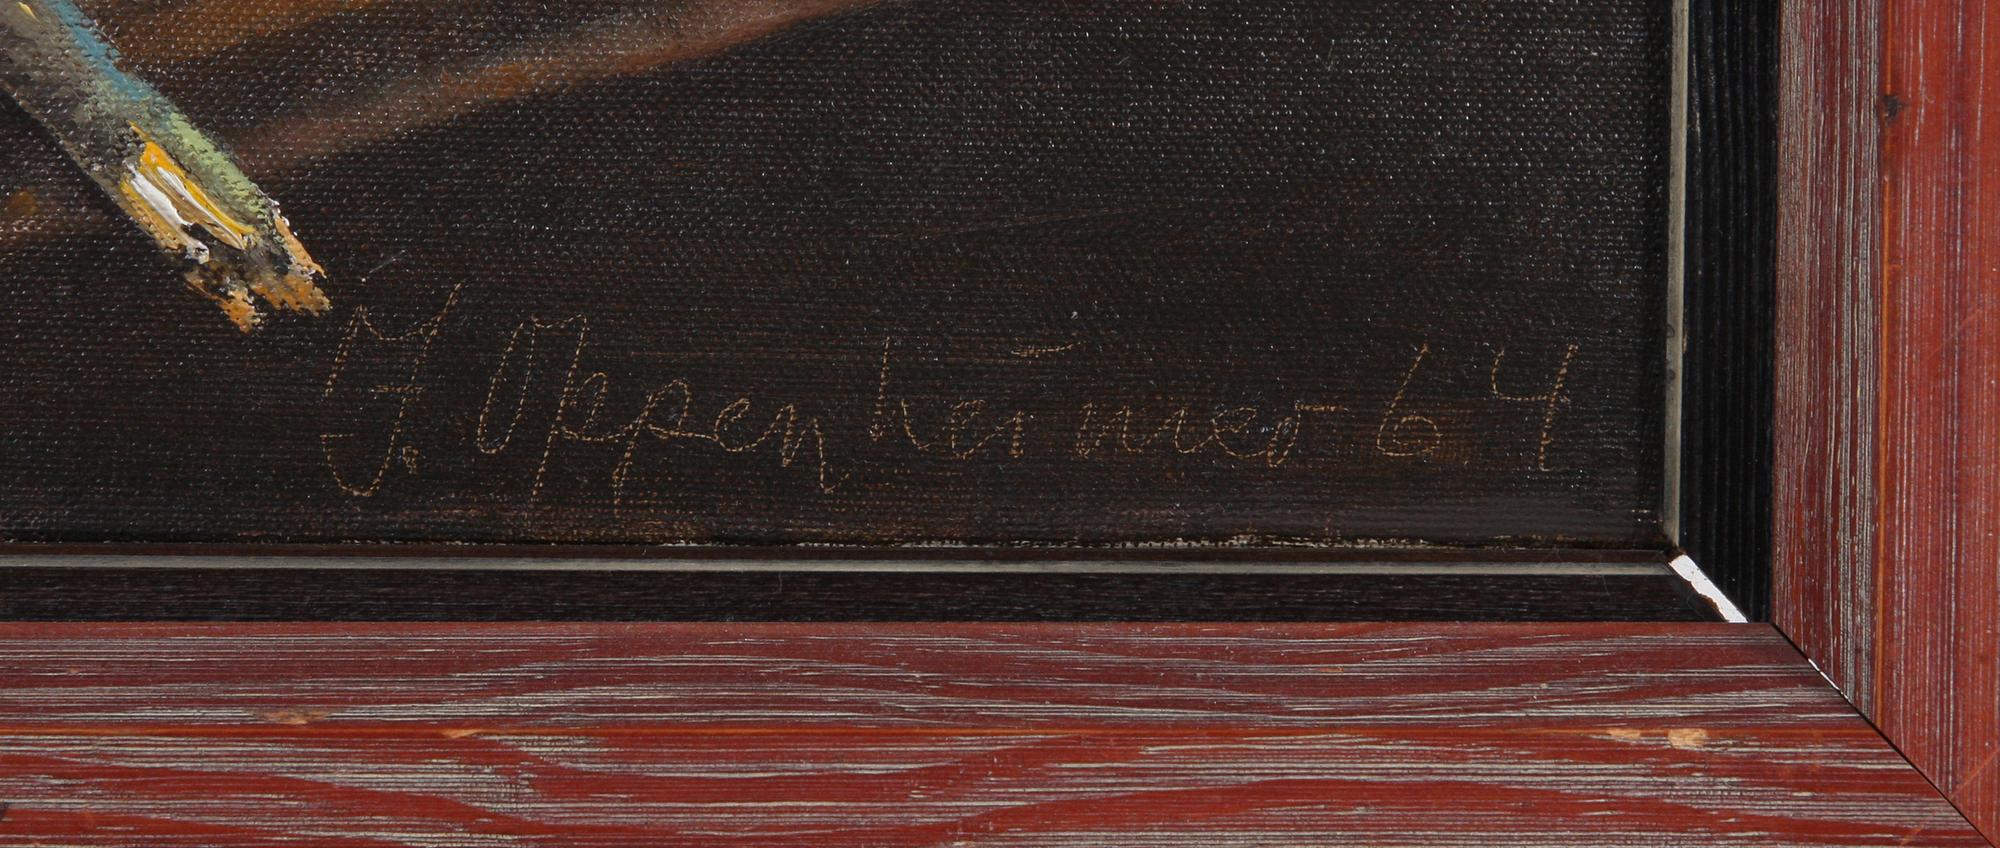 J. Oppenheimer 64